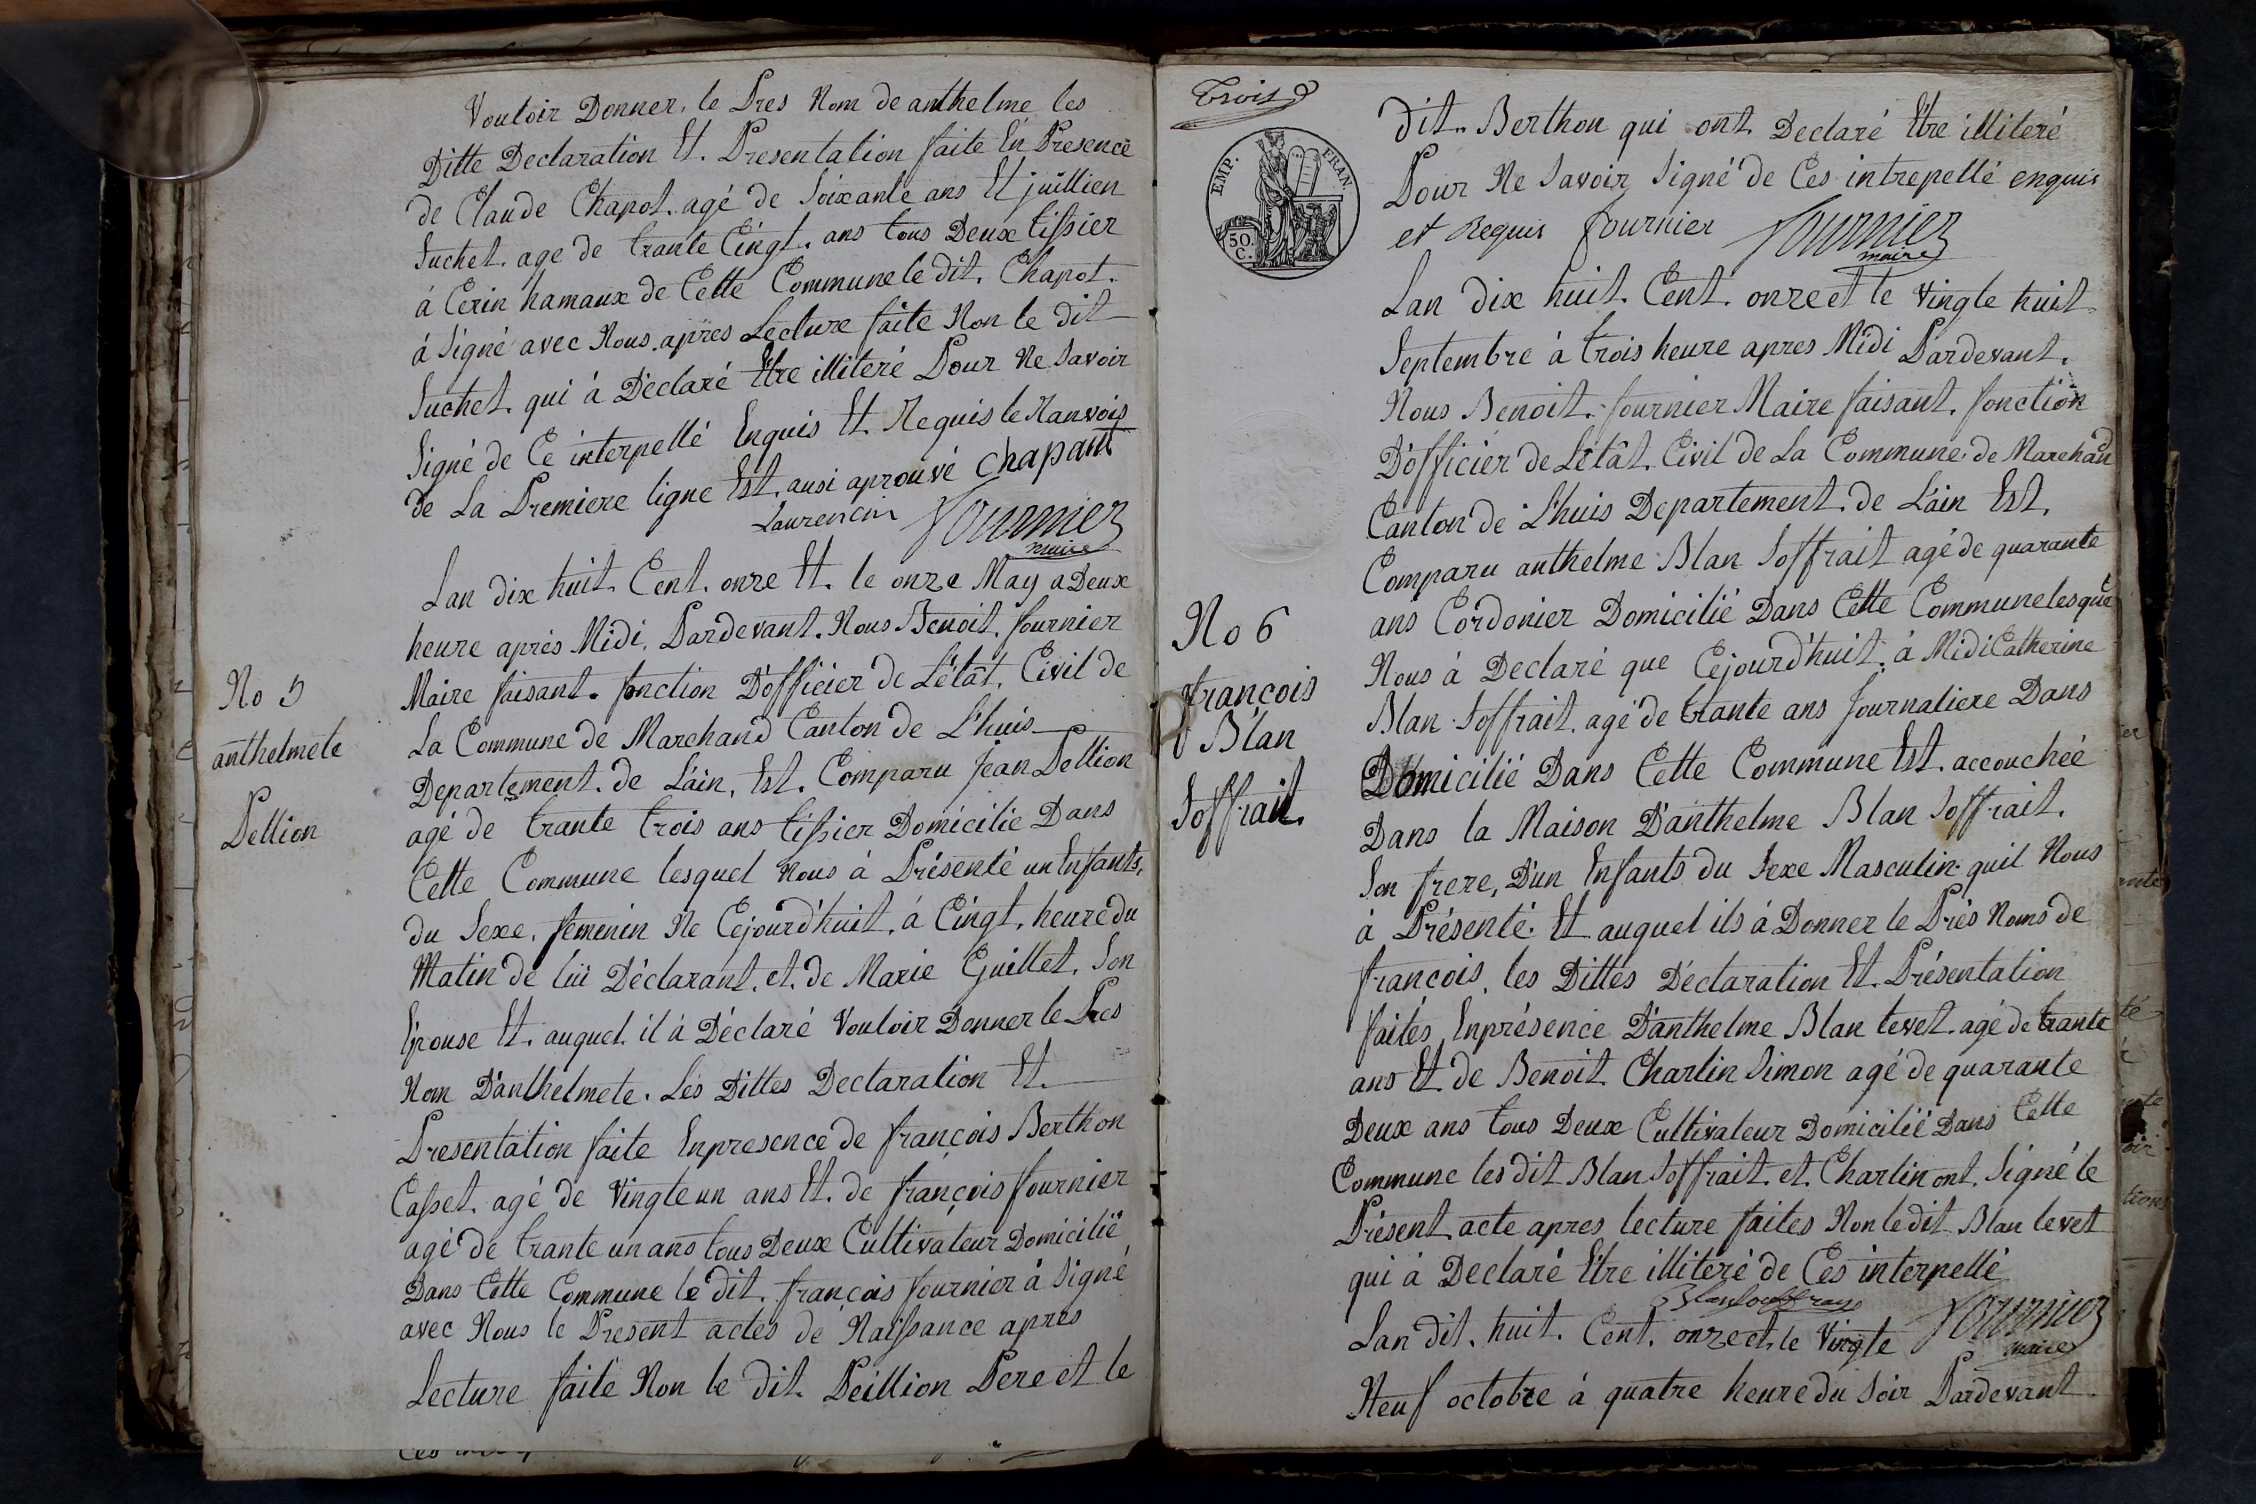 Vouloir Donner le Pres Nom de anthelme les
Ditte Declaration Et. Presentation faite En Presence
de Claude Chapot. agé de Soixante ans Et juillien
Suchet. age de trante Cingt. ans tous Deux tissier
á Cerin hamaux de Cette Commune le dit. Chapot.
á Signé avec Nous apres Lecture faite Non le dit
Suchet. qui á Déclaré Etre illiteré Pour Ne Savoir
Signé de Ce interpellé Enquis Et. Requis le Ranvois
de La Premiere ligne Est. ausi aprouvé chapant
Laurencin fournier
maire
Lan dix huit. Cent. onze Et. le onze May a Deux
heure aprés Midi. Pardevant. Nous Benoit. fournier
Maire faisant. fonction D'officier de L'étât. Civil de
La Commune de Marchand Canton de L'huis
Departement. de L'áin. Est. Comparu Jean Pellion
agé de trante trois ans tissier Domicilié Dans
Cette Commune lesquel Nous á Présenté un Enfants.
du Sexe. femenin Ne Cejourd'huit. á Cingt. heure du
Matin de lui Déclarant. et. de Marie Guillet. Son
Epouse Et. auquel. il á Déclaré Vouloir Donner le Pres
Nom D'anthelmete. Les Dittes Declaration Et.
Presentation faite Enpresence de françois Berthon
Casset. agé de Vingte un ans Et. de françois fournier
agé de trante un ans tous Deux Cultivateur Domicilié
Dans Cette Commune le dit. françois fournier á Signé
avec Nous le Present actes de Naissance aprés
Lecture faite Non le dit. Peillion Pere et le
No 5
anthelmete
Pellion
Trois
EMP. FRAN.
50.
C.
dit. Berthon qui ont Declaré Etre illiteré
Pour Ne Savoir Signé de Ces intrepellé enquis
et Requis fournier fournier
maire
Lan dix huit. Cent. onze et le Vingte huit
Septembre á trois heure apres Midi Pardevant.
Nous Benoit. fournier Maire faisant. fonction
D'officier de L'étât. Civil de La Commune de Marchand
Canton de L'huis Departement. de L'áin Est.
Comparu anthelme Blan Soffrait agé de quarante
ans Cordonier Domicilié Dans Cette Commune lesquel
Nous á Declaré que Cejourd'huit. á Midi Catherine
Blan Soffrait. agé de trante ans Journaliere Dans
Domicilié Dans Cette Commune Est. accouchéé
Dans la Maison D'anthelme Blan Soffrait.
Son frere, D'un Enfants du Sexe Masculin quil Nous
á Présenté. Et auquel ils á Donner le Prés Noms de
françois. les Dittes Déclaration Et. Présentation
faités Enprésence D'anthelme Blan levet. agé de trante
ans Et de Benoit Charlin Simon agé de quarante
Deux ans tous Deux Cultivateur Domicilié Dans Cette
Commune les dit Blan Soffrait. et. Charlin ont. Signé le
Présent acte apres lecture faites Non le dit Blan levet
qui á Declaré Etre illiteré de Ces interpellé
fournier
maire
Lan dit. huit. Cent. onze et le Vingte
Neuf octobre á quatre heure du Soir Pardevant
No 6
françois
Blan
Soffrait.